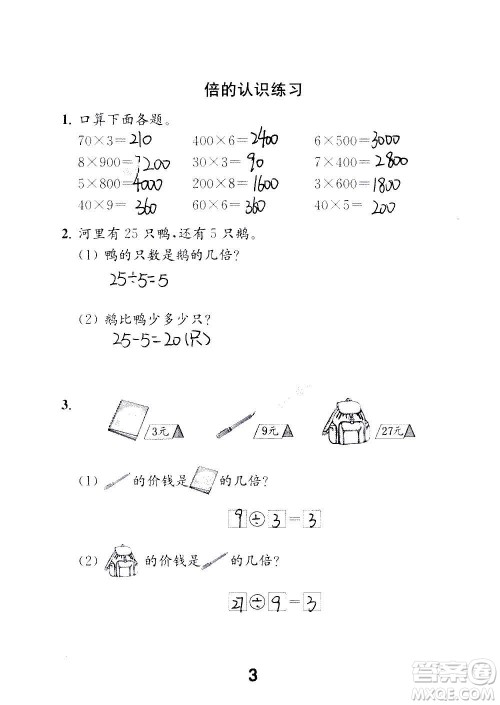 倍的认识练习
1. 口算下面各题。
70×3=210 400×6=2400 6×500=3000
8×900=7200 30×3=90 7×400=2800
5×800=4000 200×8=1600 3×600=1800
40×9=360 60×6=360 40×5=200
2. 河里有 25 只鸭，还有 5 只鹅。
(1) 鸭的只数是鹅的几倍？
25÷5=5
(2) 鹅比鸭少多少只？
25-5=20(只)
3.
3元 9元 27元
(1) 的价钱是 的几倍？
9÷3=3
(2) 的价钱是 的几倍？
27÷9=3
3
答案圈